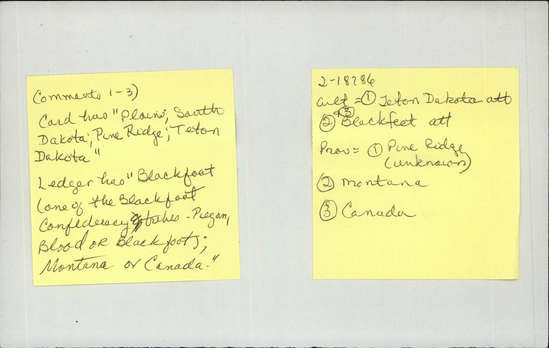 Comments 1-3)
Card has "Plains; South
Dakota; Pine Ridge; Teton
Dakota"
Ledger has "Blackfoot
(one of the Blackfoot
Confederacy tribes - Piegan,
Blood or Blackfoot);
Montana or Canada."
2-18786
Cult = ① Teton Dakota att
② + ③ Blackfeet att
Prov = ① Pine Ridge
(unknown)
② Montana
③ Canada